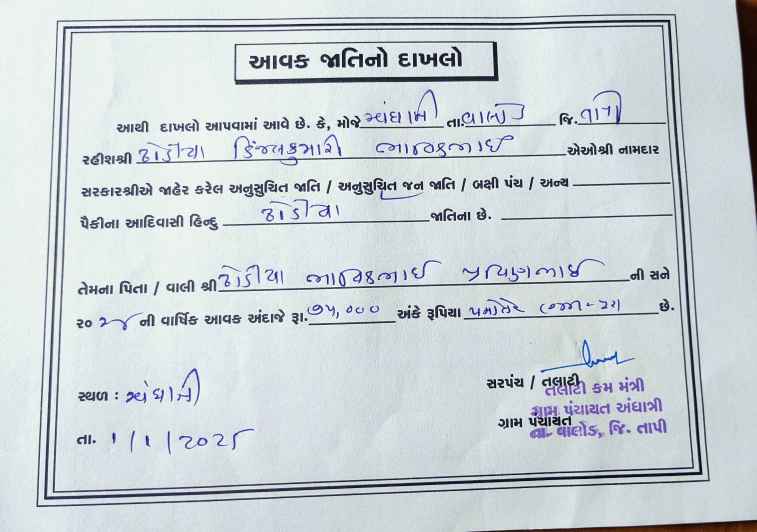 આવક જાતિનો દાખલો
આથી દાખલો આપવામાં આવે છે. કે, મોજે અંધાત્રી તા. વાલોડ જિ. તાપી
રહીશશ્રી ઢોડીયા કિંજલકુમારી ભાવિકભાઈ એઓશ્રી નામદાર
સરકારશ્રીએ જાહેર કરેલ અનુસુચિત જાતિ / અનુસુચિત જન જાતિ / બક્ષી પંચ / અન્ય
પૈકીના આદિવાસી હિન્દુ ઢોડીયા જાતિના છે.
તેમના પિતા / વાલી શ્રી ઢોડીયા ભાવિકભાઈ પ્રવિણભાઈ ની સને
૨૦૨૪ ની વાર્ષિક આવક અંદાજે રૂા. ૭૫,૦૦૦ અંકે રૂપિયા છે.
સ્થળ : અંધાત્રી
તા. 1/1/2025
સરપંચ / તલાટી
તલાટી કમ મંત્રી
ગ્રામ પંચાયત અંધાત્રી
ગ્રામ પંચાયત
તા. વાલોડ, જિ. તાપી